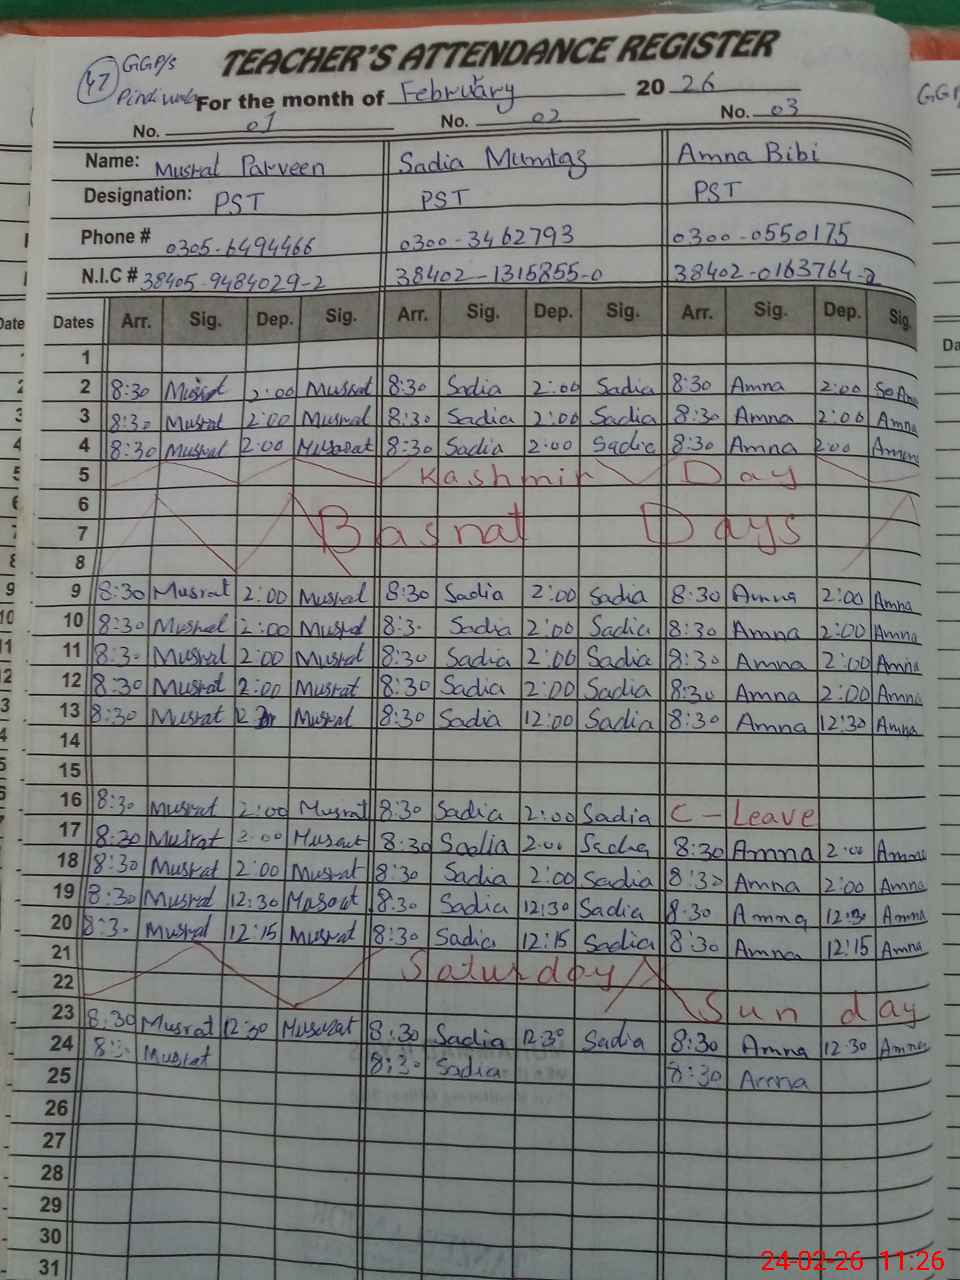 TEACHER'S ATTENDANCE REGISTER
47 GGP/S
For the month of February 20 26
No. 01 No. 02 No. 03
Name: Musrat Parveen Sadia Mumtaz Amna Bibi
Designation: PST PST PST
Phone # 0305-6494466 0300-3462793 0300-0550175
N.I.C # 38405-9484029-2 38402-1315855-0 38402-0163764-2
Dates Arr. Sig. Dep. Sig. Arr. Sig. Dep. Sig. Arr. Sig. Dep. Sig.
1
2 8:30 Musrat 2:00 Musrat 8:30 Sadia 2:00 Sadia 8:30 Amna 2:00
3 8:30 Musrat 2:00 Musrat 8:30 Sadia 2:00 Sadia 8:30 Amna 2:00 Amna
4 8:30 Musrat 2:00 Musarat 8:30 Sadia 2:00 Sadia 8:30 Amna 2:00 Amna
5 Kashmir Day
6
7 Basnat Days
8
9 8:30 Musrat 2:00 Musrat 8:30 Sadia 2:00 Sadia 8:30 Amna 2:00 Amna
10 8:30 Musrat 2:00 Musrat 8:3- Sadia 2:00 Sadia 8:30 Amna 2:00 Amna
11 8:3- Musrat 2:00 Musrat 8:30 Sadia 2:00 Sadia 8:30 Amna 2:00 Amna
12 8:30 Musrat 2:00 Musrat 8:30 Sadia 2:00 Sadia 8:30 Amna 2:00 Amna
13 8:30 Musrat Musrat 8:30 Sadia 12:00 Sadia 8:30 Amna 12:30 Amna
14
15
16 8:30 Musrat 2:00 Musrat 8:30 Sadia 2:00 Sadia C - Leave
17 8:30 Musrat 2:00 Musrat 8:30 Sadia 2:00 Sadia 8:30 Amna 2:00 Amna
18 8:30 Musrat 2:00 Musrat 8:30 Sadia 2:00 Sadia 8:30 Amna 2:00 Amna
19 8:30 Musrat 12:30 8:30 Sadia 12:30 Sadia 8:30 Amna 12:30 Amna
20 8:3- Musrat 12:15 Musrat 8:30 Sadia 12:15 Sadia 8:30 Amna 12:15 Amna
21 Saturday
22 Sunday
23 8:30 Musrat 12:30 Musarat 8:30 Sadia 12:30 Sadia 8:30 Amna 12:30 Amna
24 8:3- Musrat 8:30 Sadia 8:30 Amna
25
26
27
28
29
30
31
24-02-26 11:26